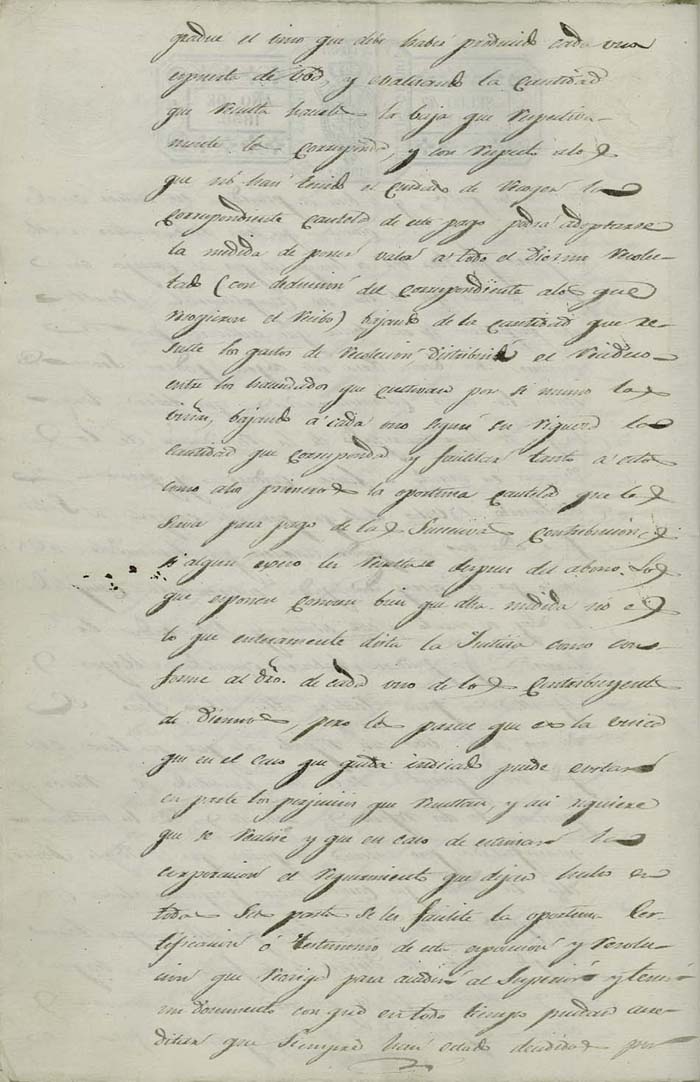 gradue el vino que debe haber producido cada una
espuerta de and evaluando la cantidad
que resulta hacerle la baja que respectiva-
mente le corresponda, y con respecto a los
que no han tenido el cuidado de recoger la
correspondiente cautela de este pago podrá adoptarse
la medida de poner valor a todo el Diezmo recolec-
tado (con deducion del correspondiente a los que
recogieron el recibo) bajando de la cantidad que re-
sulte los gastos de recolecion, distribuido el residuo
entre los hacendados que cultivan por si mismo las
viñas, bajando á cada uno segun su riqueza la
cantidad que corresponda y facilitar tanto a estos
como a los primeros la oportuna cautela que les
sirva para pago de las sucesivas contribuciones
si algun exceso les resultase despues del abono. Los
que esponen conocen bien que esta medida no es
lo que enteramente dicta la Justicia como con-
forme al dro. de cada uno de los Contribuyentes
de Diezmos, pero les parece que es la unica
que en el caso que queda indicado puede evitar
en parte los perjuicios que resultan, y asi requiere
que se realice y que en caso de estimar la
corporacion el requerimiento que dejan hecho en
todas sus partes se les facilite la oportuna Cer-
tificacion ó testimonio de esta esposicion y resolu-
cion que recaiga para acudir al Superior y tener
un documento con que en todo tiempo puedan acre-
ditar que siempre han estado decididos por